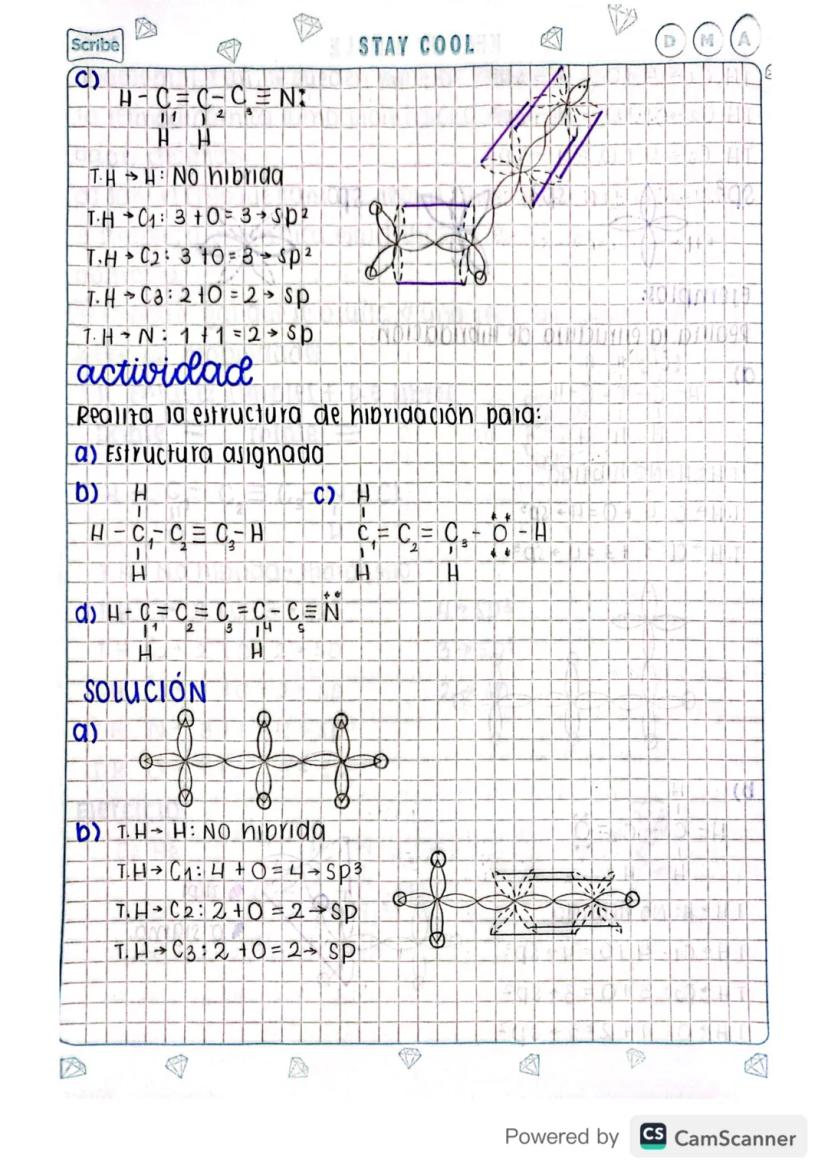 Scribe
STAY COOL
D M A
C)
H - C = C - C ≡ N:
1 2 3
H H
T.H → H: No hibrida
T.H → C1: 3 + 0 = 3 → sp²
T.H → C2: 3 + 0 = 3 → sp²
T.H → C3: 2 + 0 = 2 → sp
T.H → N: 1 + 1 = 2 → sp
actividad
Realiza la estructura de hibridación para:
a) Estructura asignada
b) H c) H
H - C1 - C2 ≡ C3 - H C1 = C2 = C3 - O - H
H H H
d) H - C = C = C = C - C ≡ N
1 2 3 4 5
H H
SOLUCIÓN
a)
b) T.H → H: NO hibrida
T.H → C1: 4 + 0 = 4 → sp³
T.H → C2: 2 + 0 = 2 → sp
T.H → C3: 2 + 0 = 2 → sp
Powered by CS CamScanner